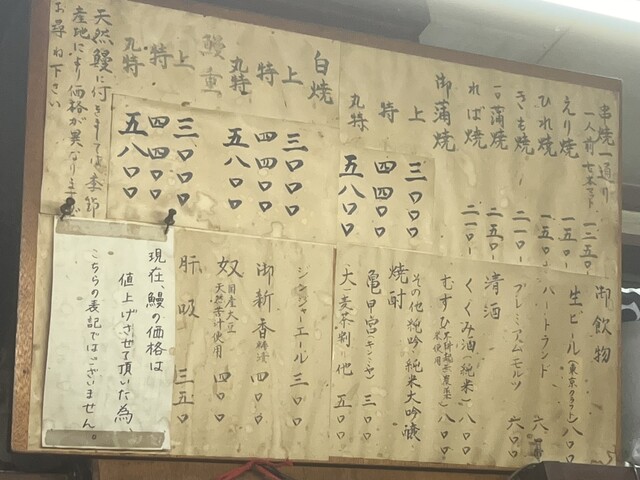 串焼一通り
一人前 七本セット 一二五〇
えり焼 一五〇
ひれ焼 一五〇
きも焼 二一〇
一口蒲焼 二五〇
れば焼 二一〇
御蒲焼
上 三〇〇〇
特 四四〇〇
丸特 五八〇〇
白焼
上 三〇〇〇
特 四四〇〇
丸特 五八〇〇
鰻重
上 三〇〇〇
特 四四〇〇
丸特 五八〇〇
天然鰻に付きましては季節
産地により価格が異なります
お尋ね下さい
御飲物
生ビール(東京クラフト) 八〇〇
ハートランド 六
プレミアムモルツ 六〇〇
清酒
くくみ酒(純米) 八〇〇
むすひ 八〇〇
その他純吟・純米大吟醸
焼酎
亀甲宮(キンミヤ) 三〇〇
大麦茶割り他 五〇〇
ジンジャーエール 三〇〇
御新香 四〇〇
奴 国産大豆 天然にがり使用 四〇〇
肝吸 三五〇
現在、鰻の価格は
値上げさせて頂いた為
こちらの表記ではございません。